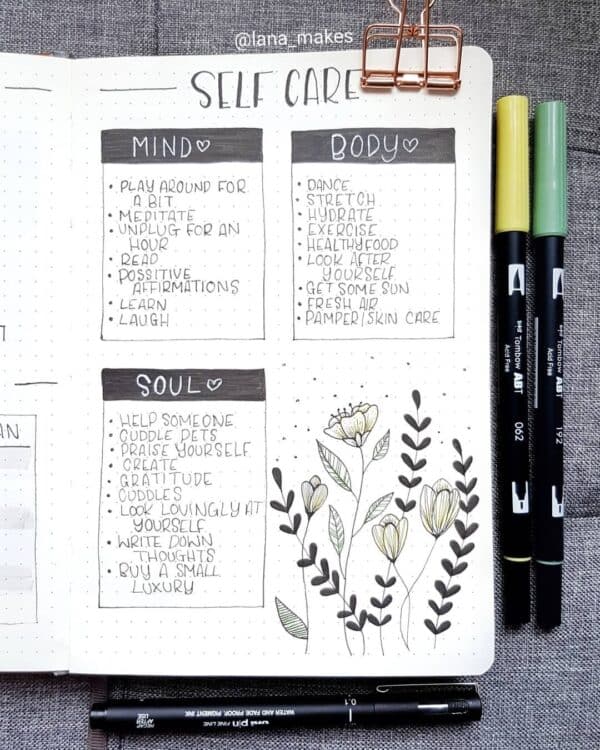 @lana_makes
SELF CARE
MIND♡
• PLAY AROUND FOR
A BIT
• MEDITATE
• UNPLUG FOR AN
HOUR
• READ
• POSSITIVE
AFFIRMATIONS
• LEARN
• LAUGH
BODY♡
• DANCE
• STRETCH
• HYDRATE
• EXERCISE
• HEALTHY FOOD
• LOOK AFTER
YOURSELF
• GET SOME SUN
• FRESH AIR
• PAMPER/SKIN CARE
SOUL♡
• HELP SOMEONE
• CUDDLE PETS
• PRAISE YOURSELF
• CREATE
• GRATITUDE
• CUDDLES
• LOOK LOVINGLY AT
YOURSELF
• WRITE DOWN
THOUGHTS
• BUY A SMALL
LUXURY
AN
Tombow ABT
Acid Free
062
Tombow ABT
Acid Free
192
uni pin FINE LINE
WATER AND FADE PROOF, PIGMENT INK
0.1